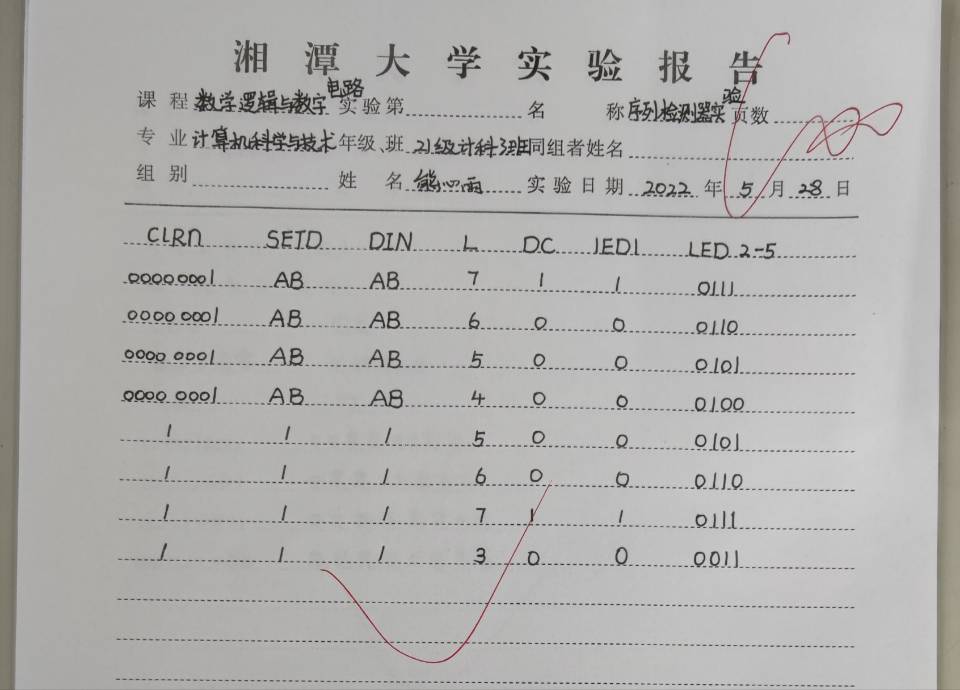 湘潭大学实验报告
课程 数学逻辑与数字电路 实验第 名称 序列检测器实验 页数
专业 计算机科学与技术 年级、班 21级计科3班 同组者姓名
组别 姓名 熊心雨 实验日期 2022 年 5 月 28 日
CLRN SETD DIN L DC lED1 LED 2-5
00000001 AB AB 7 1 1 0111
0000 0001 AB AB 6 0 0 0110
0000 0001 AB AB 5 0 0 0101
0000 0001 AB AB 4 0 0 0100
1 1 1 5 0 0 0101
1 1 1 6 0 0 0110
1 1 1 7 1 1 0111
1 1 1 3 0 0 0011